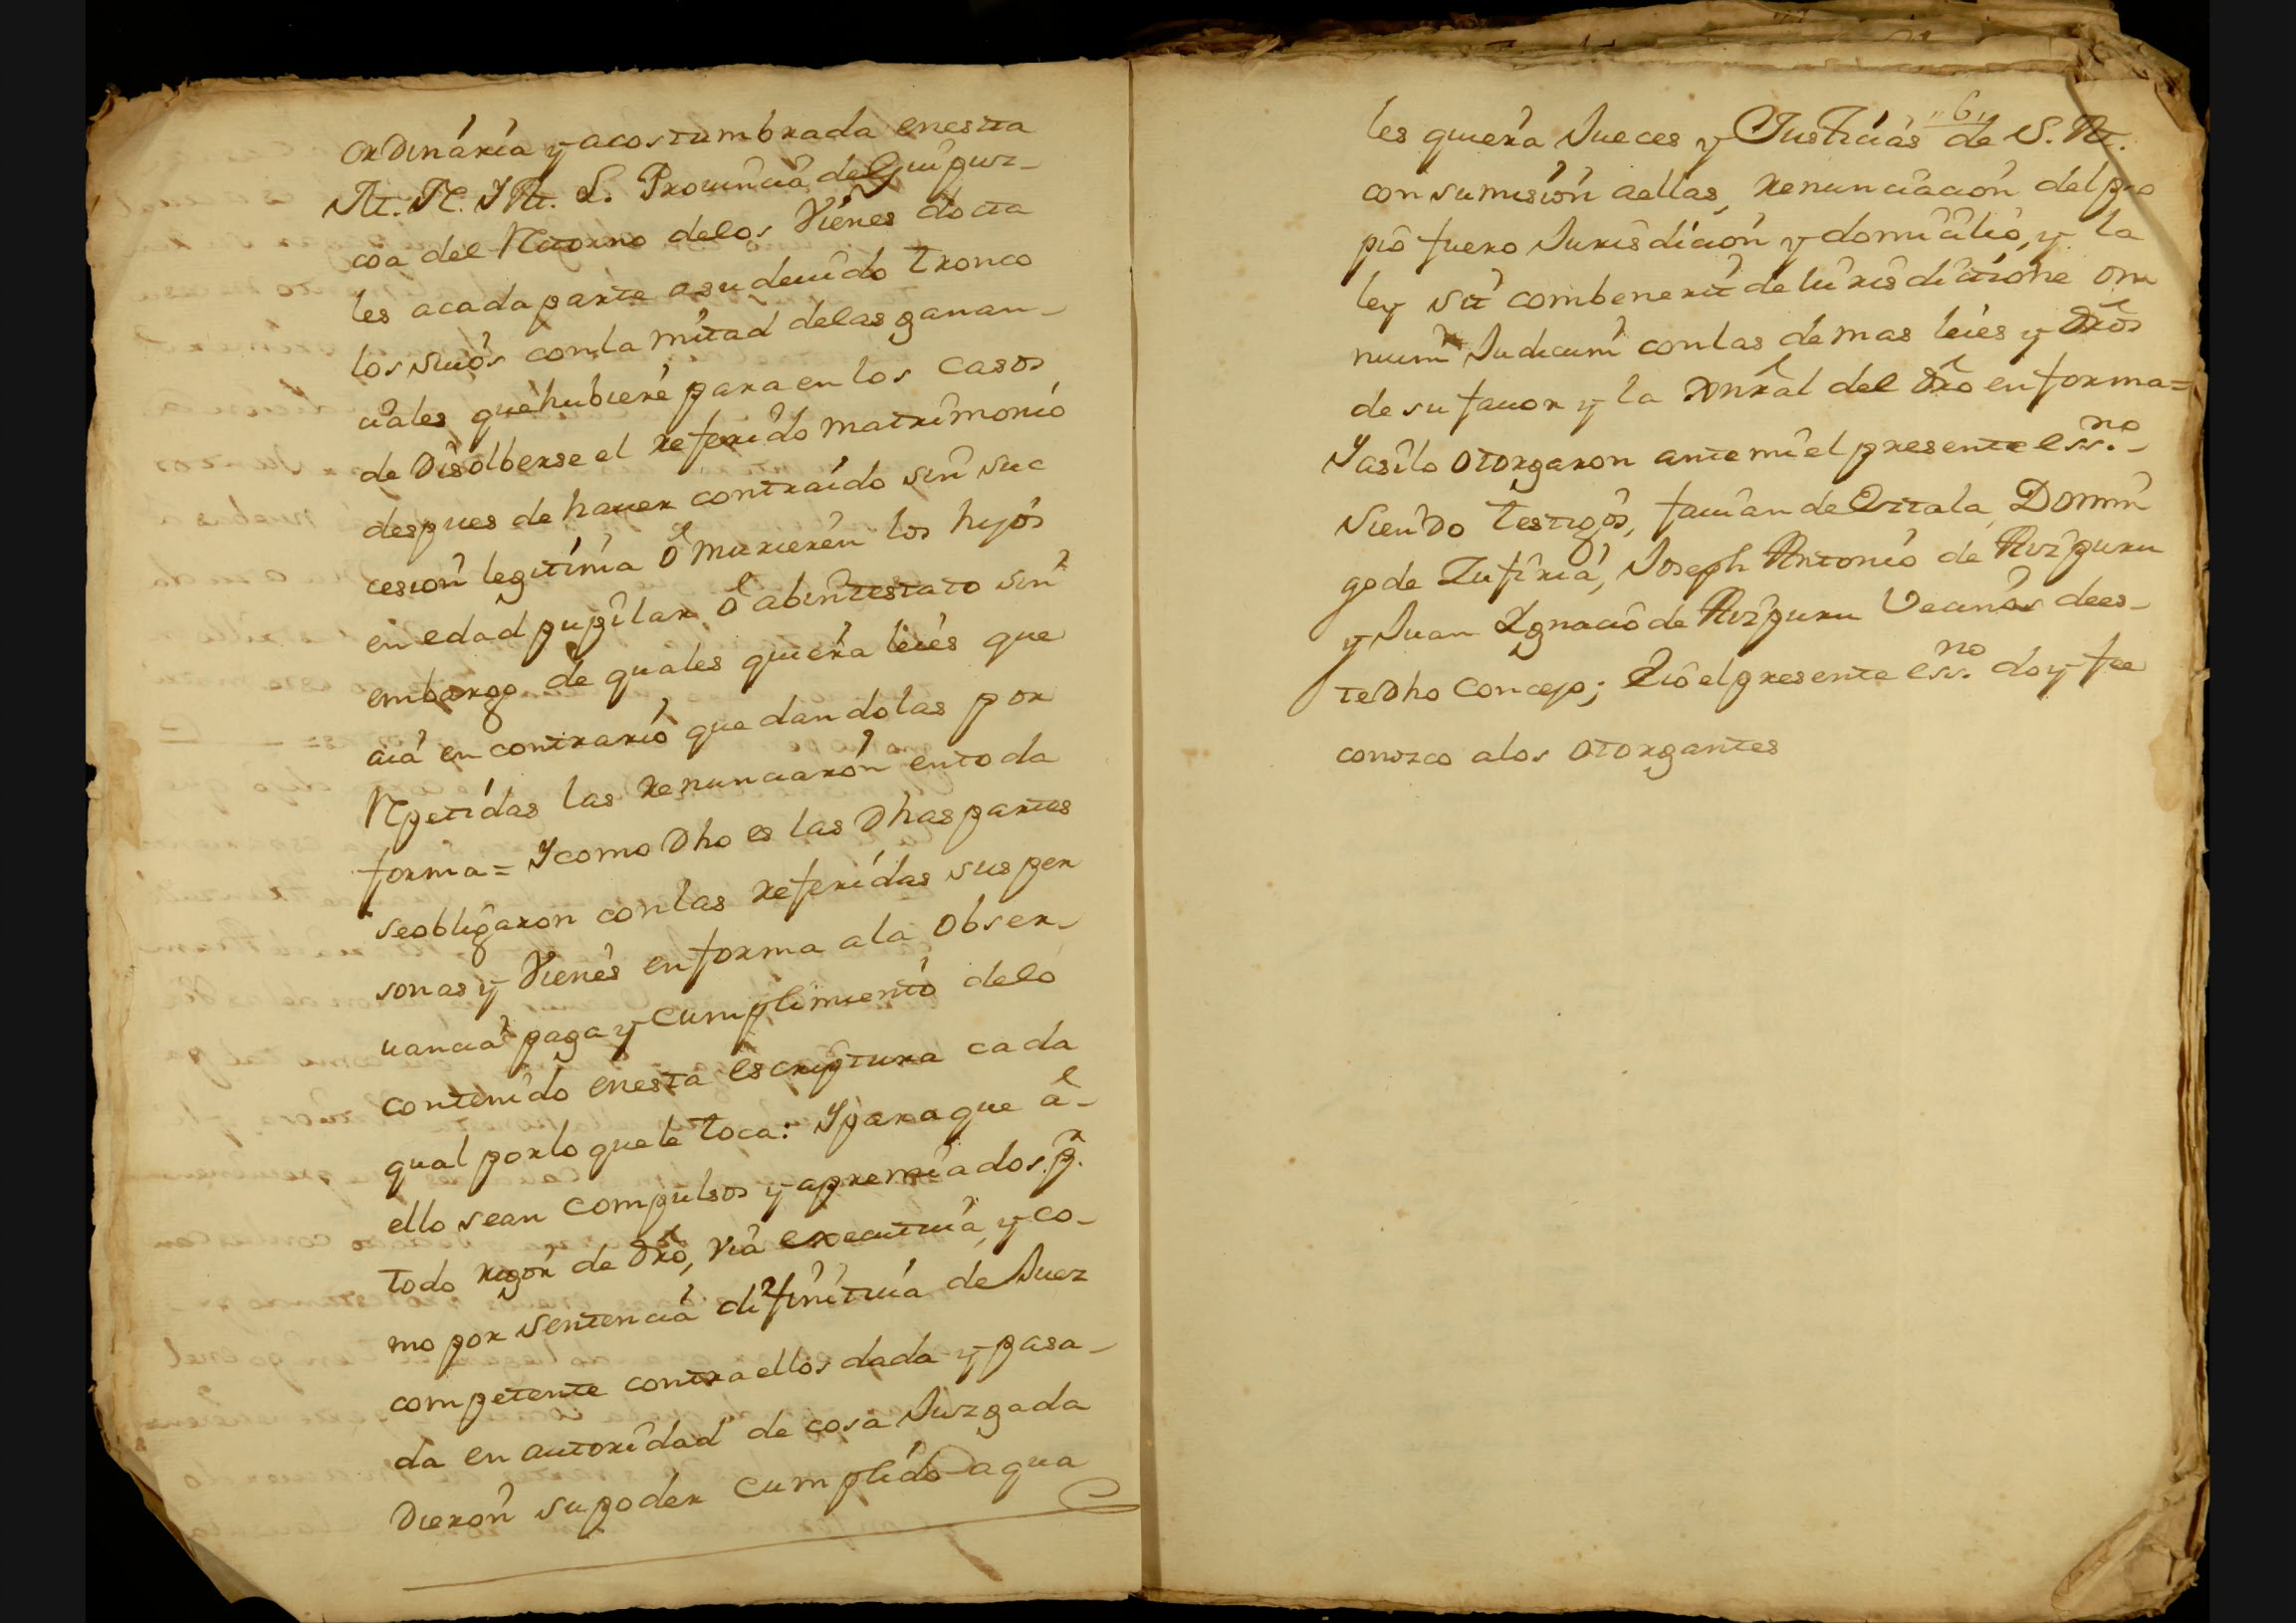 ordinária y acostumbrada enesta
M. N. Y M. L. Prouincia de Guipuz-
coa del Retorno delos Vienes dota
les acada parte asu deuido tronco
los suios con la mitad delas ganan-
ciales que hubiere para en los casos
de Disolberse el referido matrimonio
despues de hauer contraido sin suc
cesion legitima ó murieren los hyos
en edad pupilar ó abintestato sin
embargo de quales quiera leies que
aia en contrario que dandolas por
Repetidas las renunciaron en toda
forma = Y como Dho es las Dhas partes
seobligaron con las referidas sus per
sonas y Vienes en forma ala obser-
uancia paga y cumplimiento delo
contenido enesta escriptura cada
qual porlo que le toca: Y paraque á-
ello sean compulsos y apremiados p.r
todo rigor de Dro, via executiua, y co-
mo por sentencia difinitiua de Juez
competente contra ellos dada y pasa-
da en autoridad de cosa Juzgada
Dieron su poder cumplido a qua
"6"
les quiera Jueces y Justicias de S. M.
con sumision aellas, renunciacion del pro
pio fuero Jurisdicion y domicilio, y la
ley sit combenerit de Iurisdictione om
nium Judicum con las demas leies y Dros
de su fauor y la Genral del Dro en forma=
Y asilo otorgaron ante mi el presente ess.no-
siendo testigos, fauian de Ostala, Domin
go de Zufiria, Joseph Antonio de Aizpuru
y Juan Ygnacio de Aizpuru Vecinos dees-
te Dho Concejo; E io el presente ess.no doy fee
conozco alos otorgantes